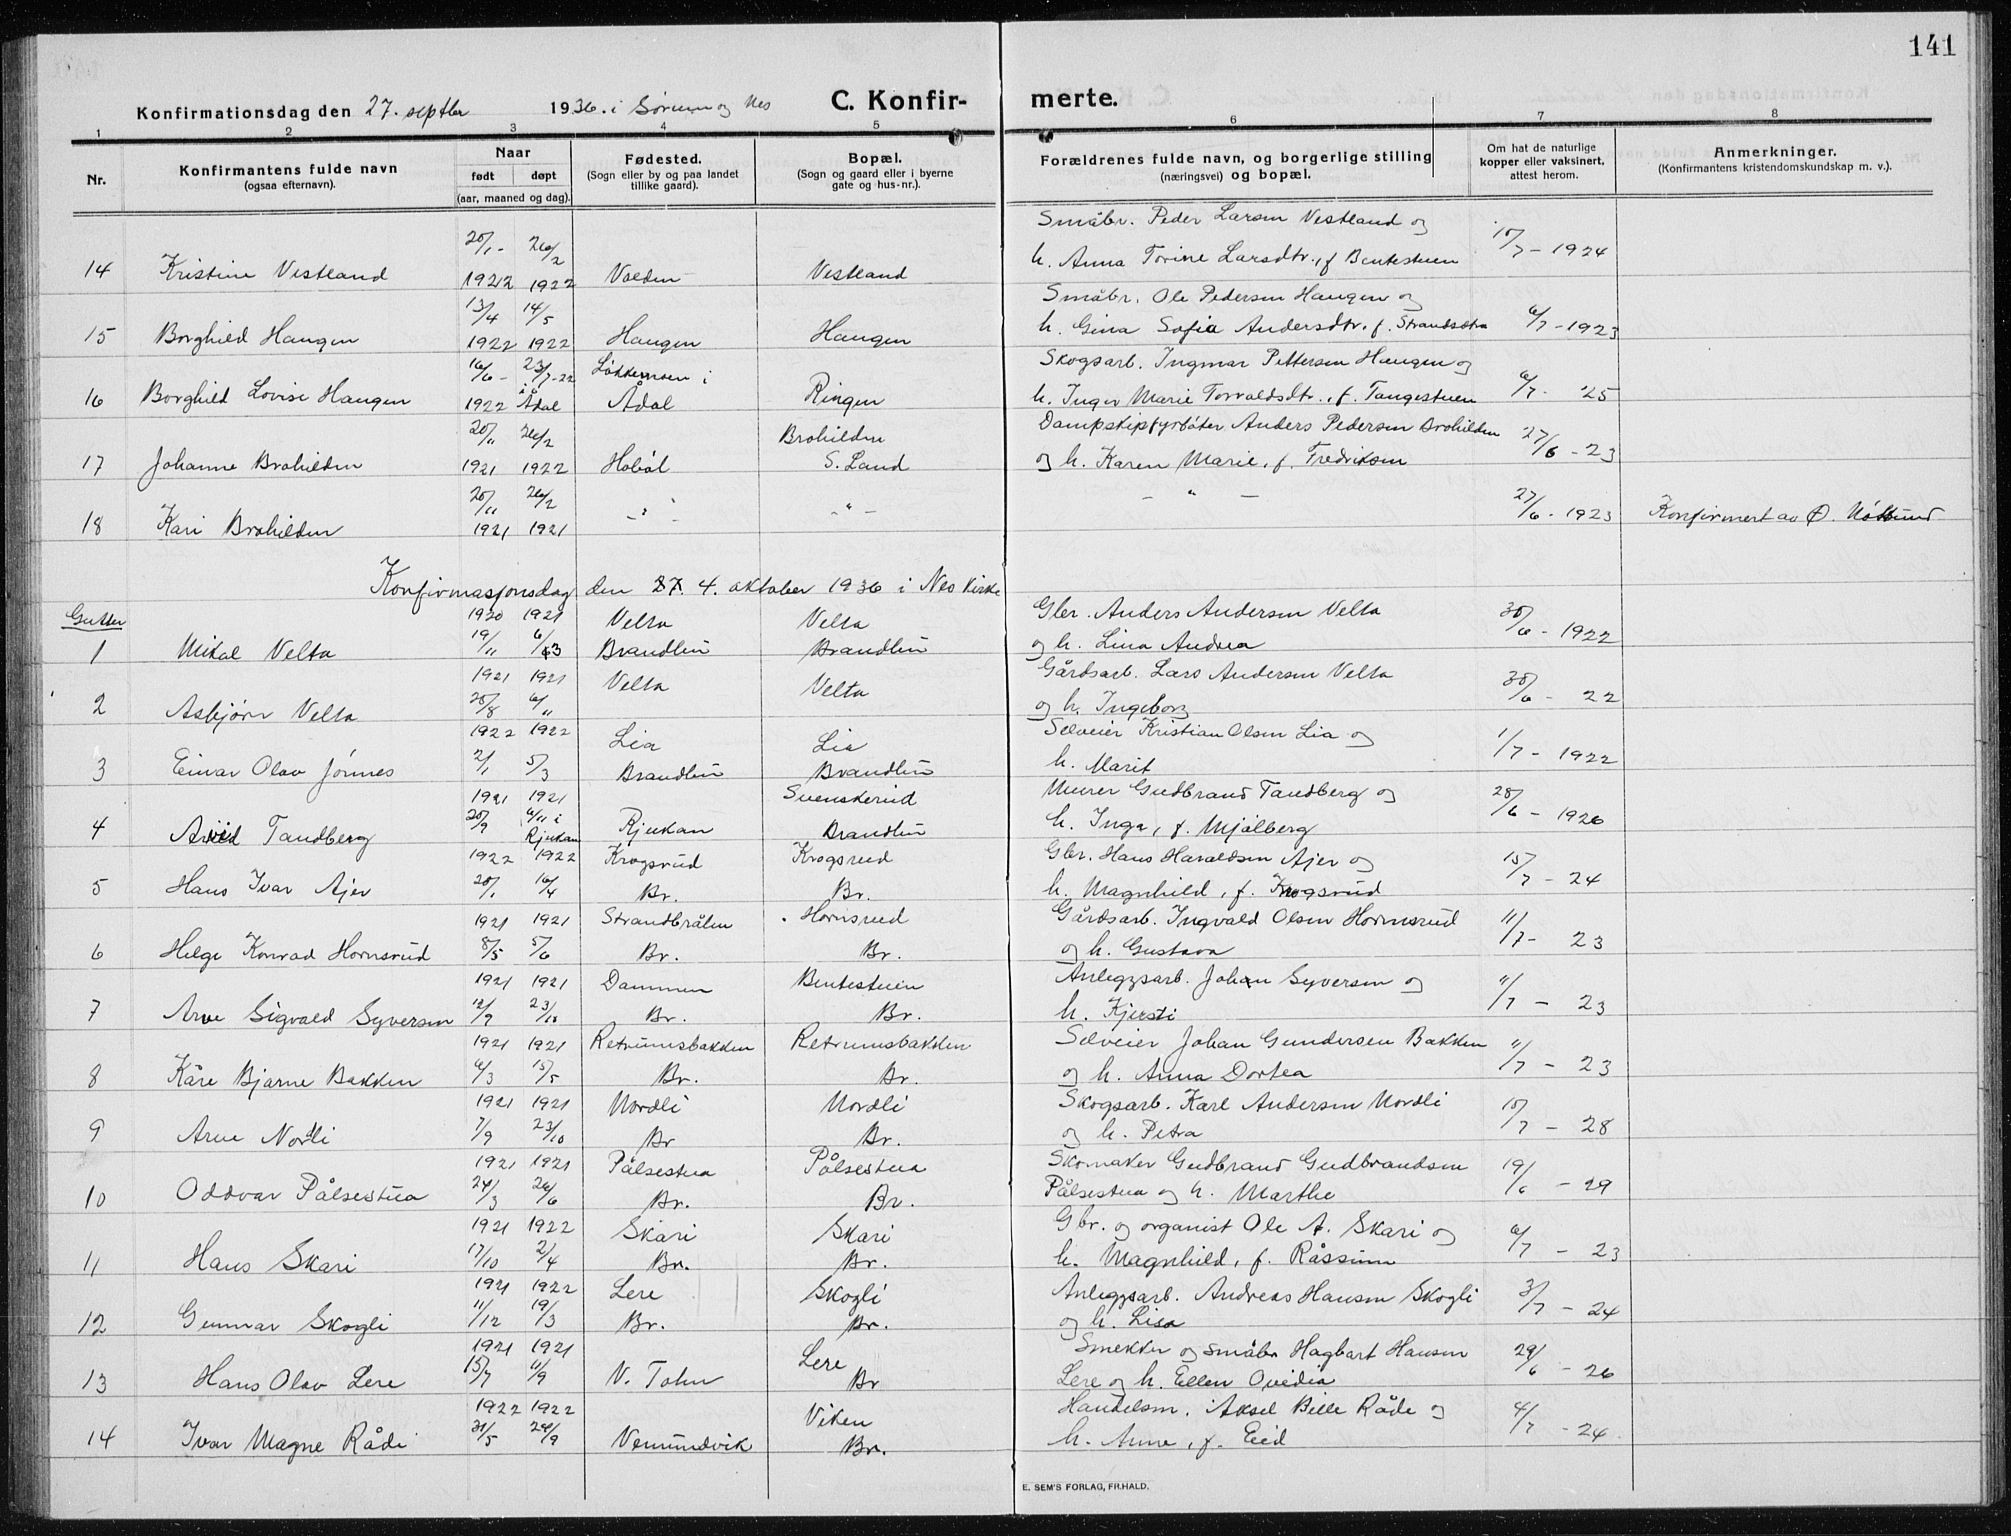 141
Konfirmationsdag den 27. septbr 1936. i Sørum og Nes
C. Konfir-
merte.
1 2 3 4 5 6 7 8
Nr.
Konfirmantens fulde navn
(ogsaa efternavn).
Naar
født døpt
(aar, maaned og dag).
Fødested.
(Sogn eller by og paa landet
tillike gaard).
Bopæl.
(Sogn og gaard eller i byerne
gate og hus-nr.).
Forældrenes fulde navn, og borgerlige stilling
(næringsvei) og bopæl.
Om hat de naturlige
kopper eller vaksinert,
attest herom.
Anmerkninger.
(Konfirmantens kristendomskundskap m. v.).
20/1 - 26/2 Småbr. Peder Larsen Vestland og
14 Kristine Vestland 1922 1922 Volden Vestland h. Anna Torine Larsdtr., f Bentestuen 10/7 - 1924
13/4 14/5 Småbr. Ole Pedersen Haugen og
15 Borghild Haugen 1922 1922 Haugen Haugen h. Gina Sofia Andersdtr. f. 6/7 - 1923
16/6 - 23/7-22 i Skogsarb. Ingmar Pettersen Haugen og
16 Borghild Lovise Haugen 1922 Ådal Ådal Ringen h. Inger Marie Torvaldsdtr., f. Tangestuen 6/7 - 25
20/11 26/2 Brohilden Dampskipfyrbøter Anders Pedersen Brohilden
17 Johanne Brohilden 1921 1922 Hobøl S. Land og h. Karen Marie, f. Fredriksen 27/6 - 23
20/11 26/2
18 Kari Brohilden 1921 1921 - " - - " - - " - 27/6 - 1923 Konfirmert av
Konfirmasjonsdag den 27. 4. oktober 1936 i Nes Kirke
Gutter
1920 1921 Velta Velta Gbr. Anders Andersen Velta
1 Mikal Velta 19/11 6/3 Brandbu Brandbu og h. Lina Andrea 30/6 - 1922
1921 1921 Velta Velta Gårdsarb. Lars Andersen Velta
2 Asbjørn Velta 20/8 6/11 og h. Ingeborg 30/6 - 22
1922 1922 Lia Lia Selveier Kristian Olsen Lia og
3 Einar Olav Jónnes 2/1 5/3 Brandbu Brandbu h. Marit 1/7 - 1922
1921 1921 Svenskerud Murer Gudbrand Tandberg og
4 Arvid Tandberg 20/9 6/11 i Rjukan Rjukan Brandbu h. Inga, f. Mjålberg 28/6 - 1926
1922 1922 Krogsrud Krogsrud Gbr. Hans Haraldsen Ajer og
5 Hans Ivar Ajer 20/1 16/4 Br. Br. h. Magnhild, f. Krogsrud 15/7 - 24
1921 1921 Strandbråten Hornsrud Gårdsarb. Ingvald Olsen Hornsrud
6 Helge Konrad Hornsrud 8/5 5/6 Br. Br. og h. Gustava 11/7 - 23
1921 1921 Dammen Bentestuen Anleggsarb. Johan Syversen og
7 Arve Sigvald Syversen 12/9 23/10 Br. Br. h. Kjersti 11/7 - 23
1921 1921 Retrumsbakken Retrumsbakken Selveier Johan Gundersen Bakken
8 Kåre Bjarne Bakken 6/3 15/5 Br. Br. og h. Anna Dortea 11/7 - 23
1921 1921 Nordli Nordli Skogsarb. Karl Andersen Nordli
9 Arne Nordli 7/9 23/10 Br Br. og h. Petra 10/7 - 28
1921 1921 Pålsestua Pålsestua Skomaker Gudbrand Gudbrandsen
10 Oddvar Pålsestua 24/3 26/6 Br. Br. Pålsestua og h. Marthe 19/6 - 29
1921 1922 Skari Skari Gbr. og organist Ole A. Skari og
11 Hans Skari 17/10 2/4 Br. Br. h. Magnhild, f. Råssum 6/7 - 23
1921 1922 Lere Skogli Anleggsarb. Andreas Hansen Skogli
12 Gunnar Skogli 11/12 19/3 Br. Br. og h. Lisa 3/7 - 24
1921 1921 Lere Smekker og småbr Hagbart Hansen
13 Hans Olav Lere 15/7 11/9 V. Toten Br Lere og h. Ellen Ovidia 29/6 - 26
1922 1922 Viken Handelsm. Aksel Bille Råde og
14 Ivar Magne Råde 31/5 24/9 Vemundvik Br. h. Anne, f. Eid 4/7 - 24
E. SEM'S FORLAG, FR.HALD.